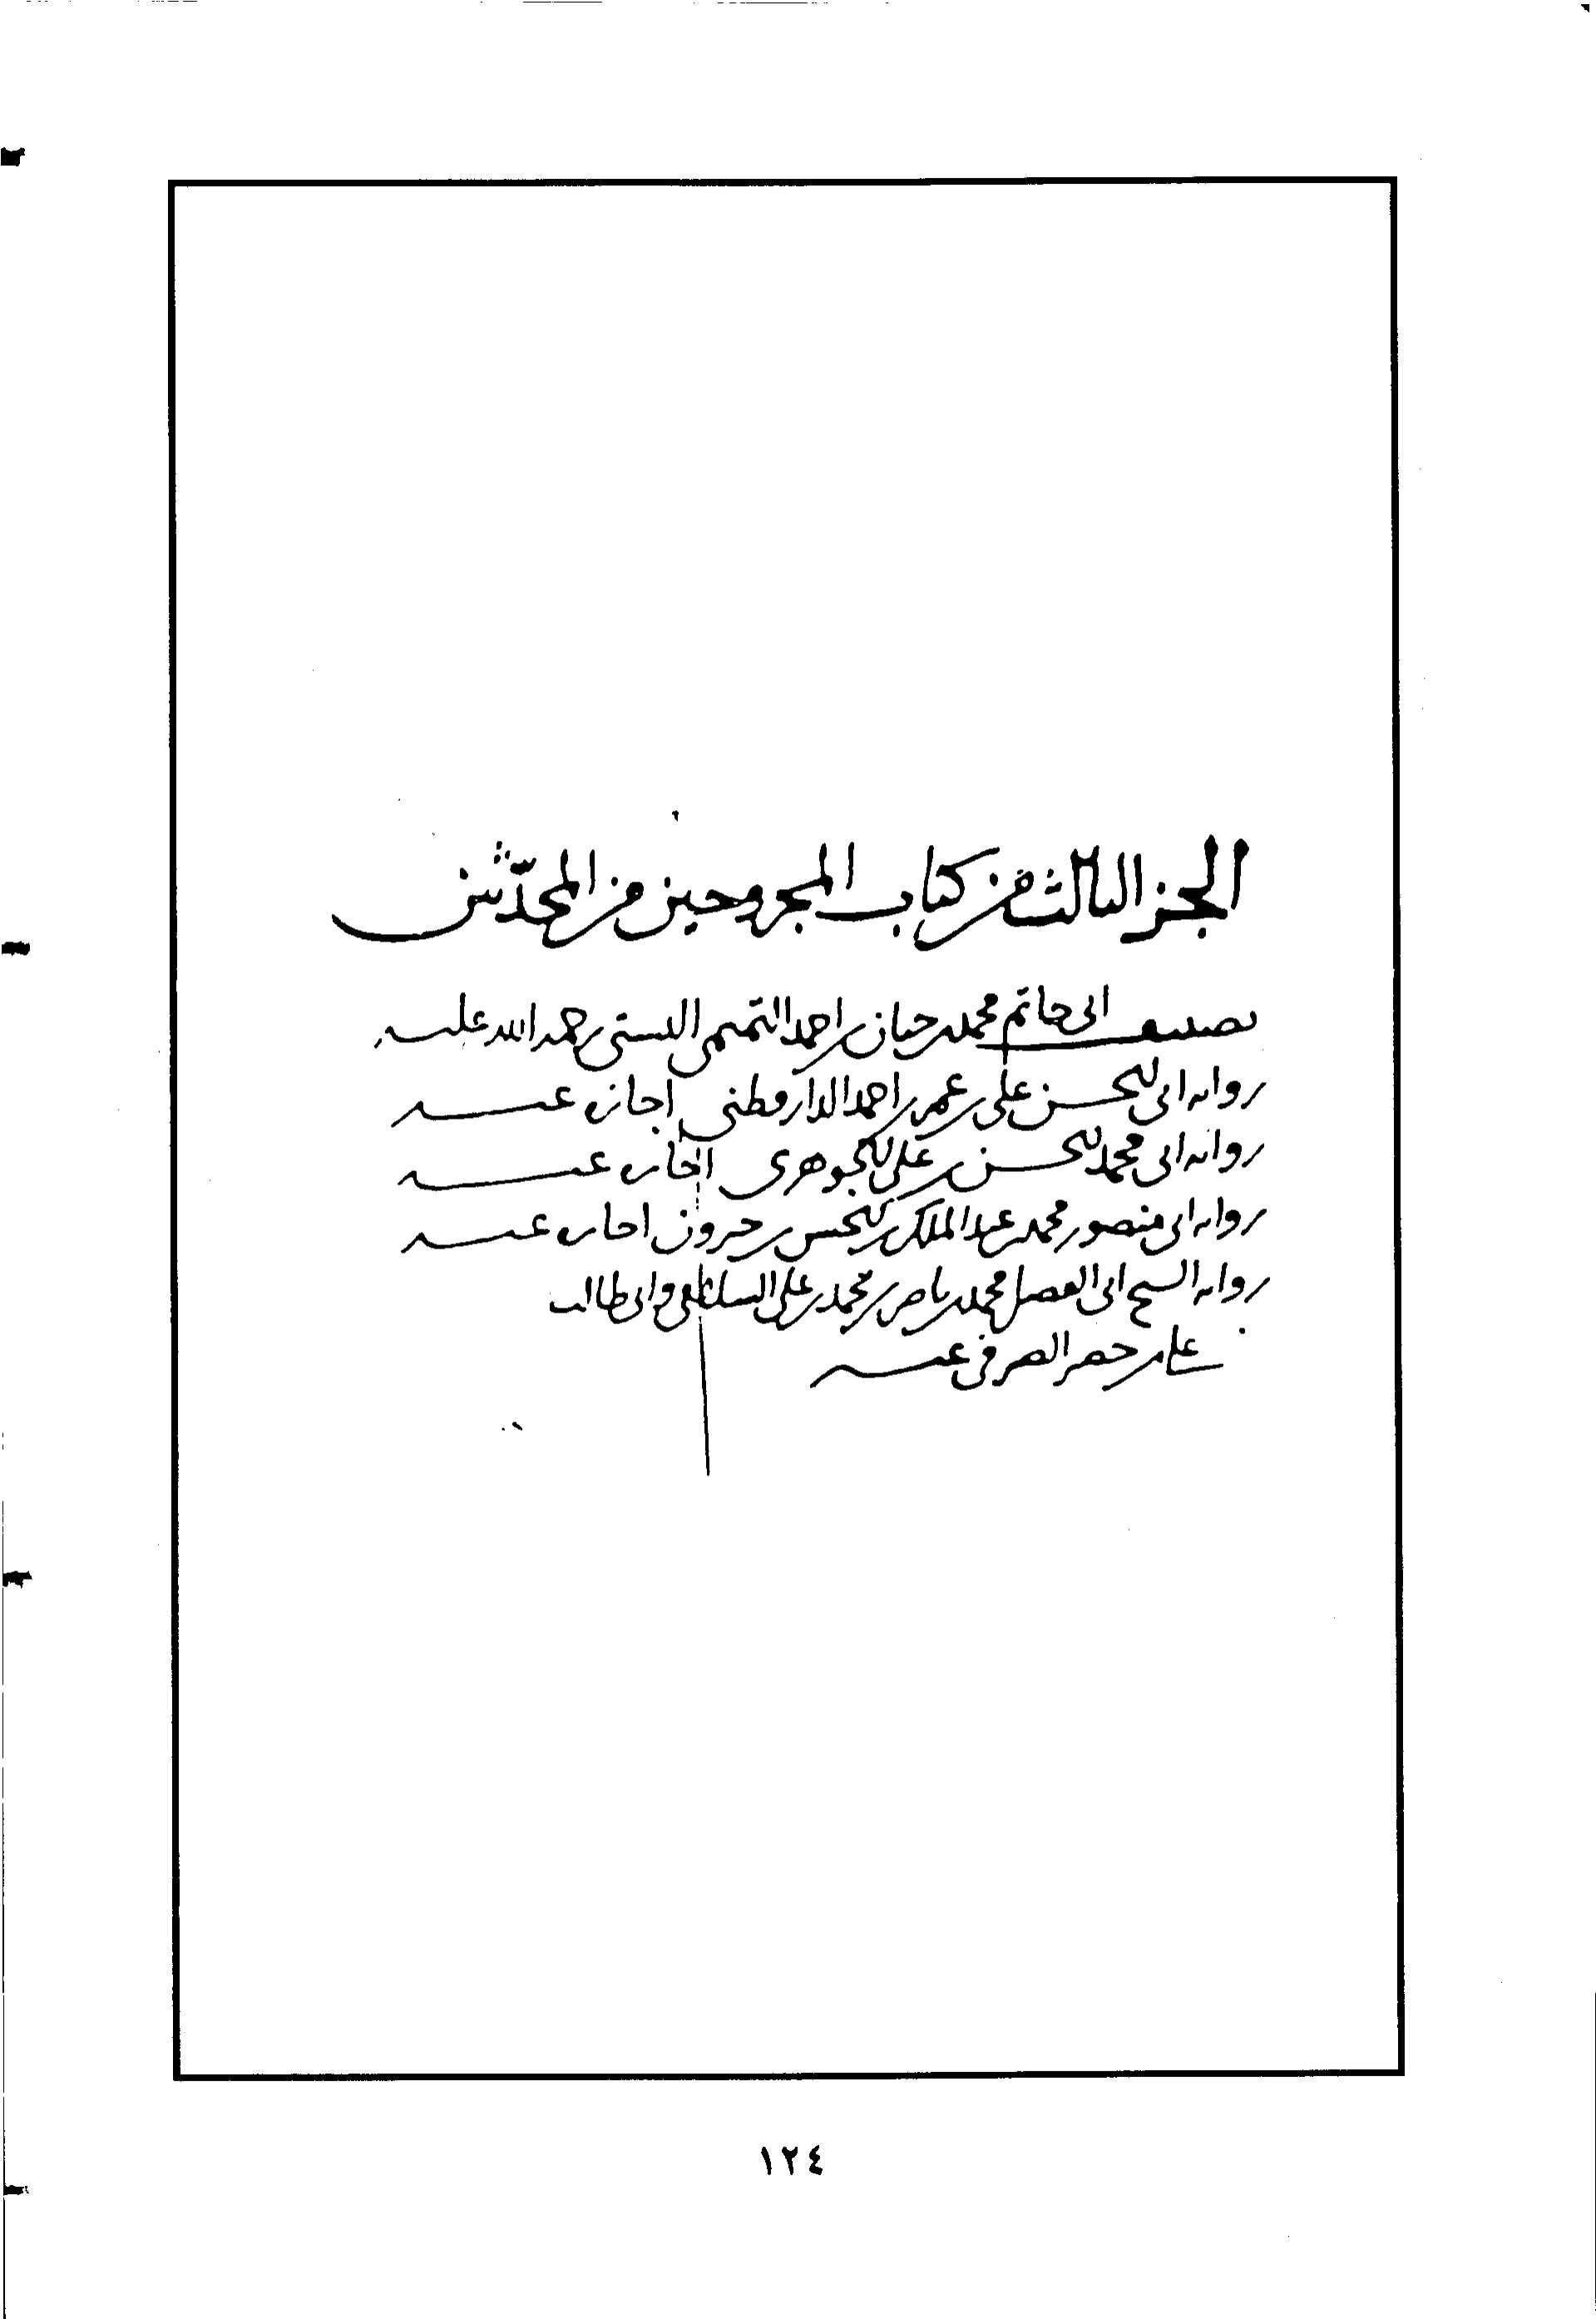 الجزء الثالث من كتاب المجروحين من المحدّثين
تصنيف ابى حاتم محمد بن حبان بن احمد التميمى البستى رحمه الله عليه
رواية ابى الحسن على بن عمر بن احمد الدارقطنى اجازة عنه
رواية ابى محمد الحسن بن على الجوهرى اجازة عنه
رواية ابى منصور محمد بن عبد الملك بن الحسن بن خيرون اجازة عنه
رواية الشيخ ابى الفضل محمد بن ناصر بن محمد بن على السلامى وابى طالب
على بن الصيرفى عنه
١٢٤